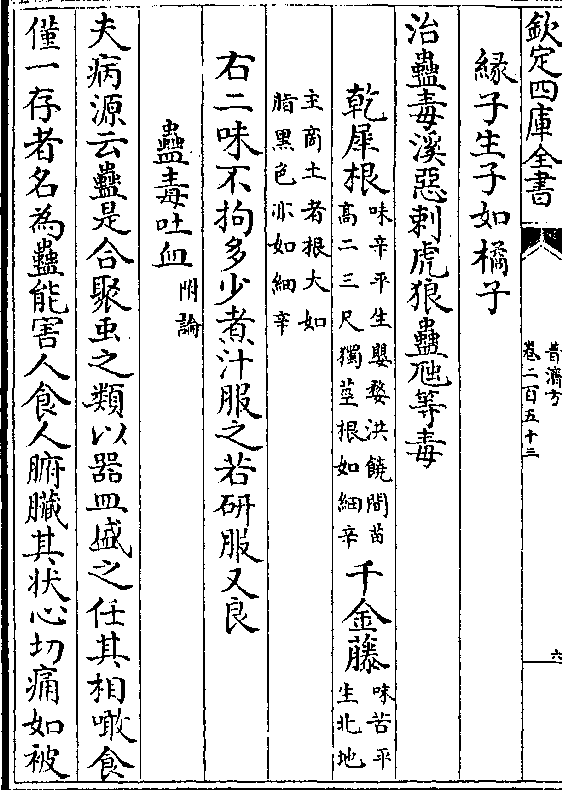 欽定四庫全書
普濟方
卷二百五十三
六
緣子生子如橘子
治蠱毒溪惡刺虎狼蠱虺等毒
乾犀根味辛平生婺婺洪饒間苗高二三尺獨莖根如細辛千金藤味苦平生北地
主商土者根大如指黑色亦如細辛
右二味不拘多少煮汁服之若研服又良
蠱毒吐血附論
夫病源云蠱是合聚虫之類以器皿盛之任其相噉食
僅一存者名為蠱能害人食人腑臟其狀心切痛如被